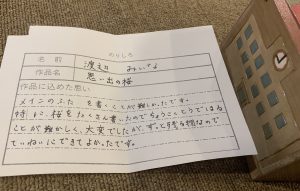 のりしろ
名前
作品名 思い出の桜
作品に込めた思い
メインのふた を書くことが難しかったです。
特に桜をたくさん書いたのでちょうこくとうでほる
ことが難かしく、大変でしたが、
ていねいにできてよかったです。